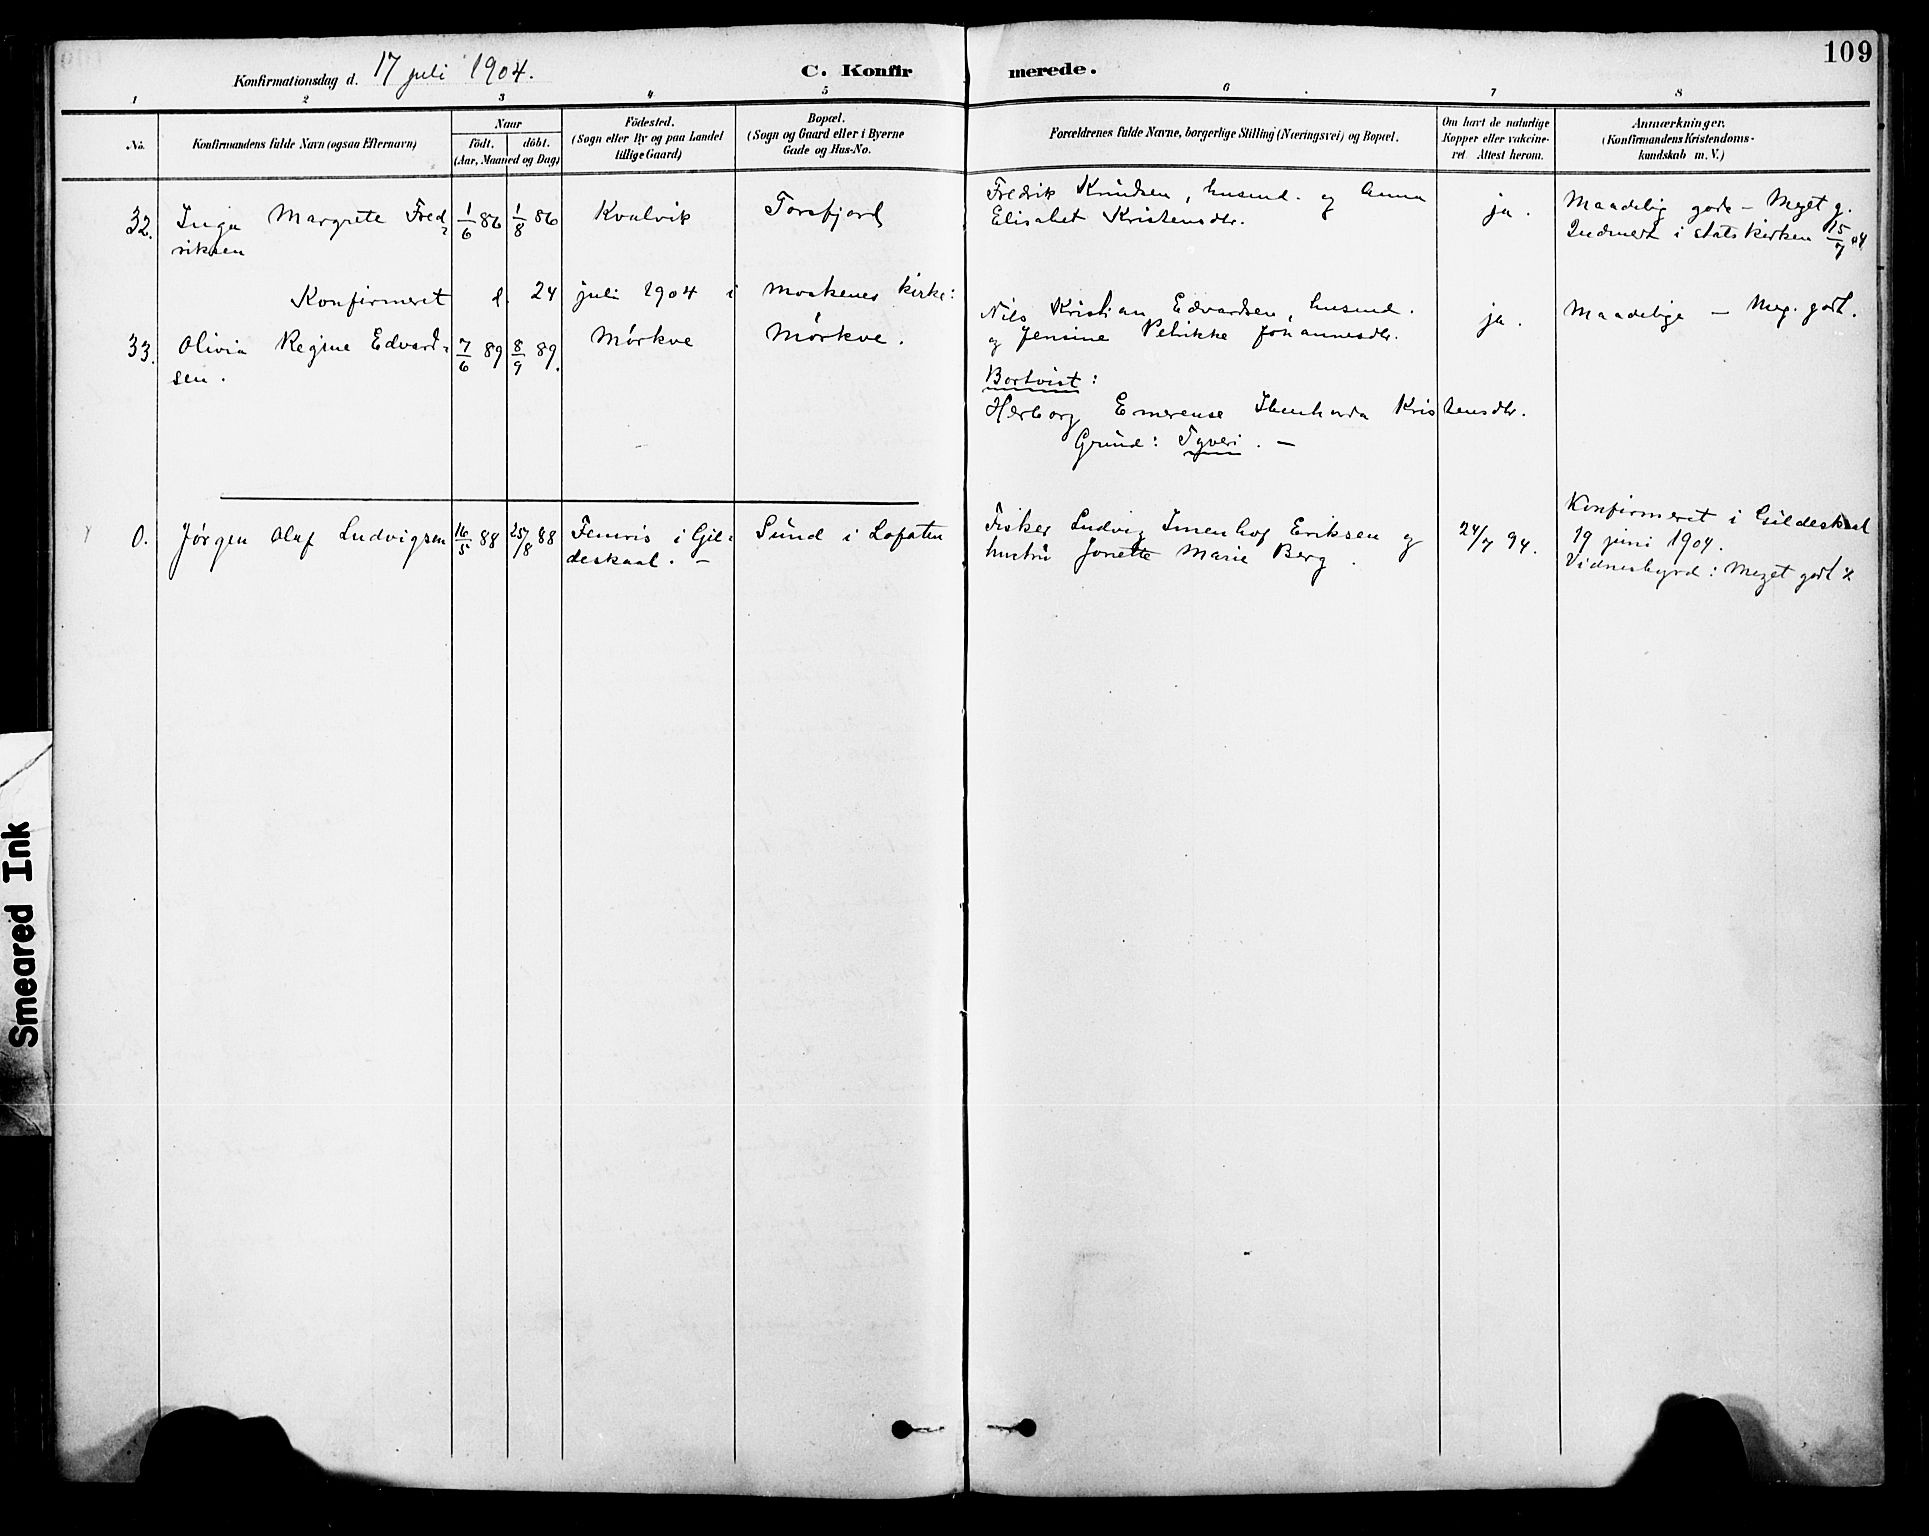 109
Konfirmationsdag d. 17 juli 1904.
C. Konfirmerede.
1 2 3 4 5 6 7 8
No.
Konfirmandens fulde Navn (ogsaa Efternavn)
Naar
født. døbt.
(Aar, Maaned og Dag)
Fødested.
(Sogn eller By og paa Landet
tillige Gaard)
Bopæl.
(Sogn og Gaard eller i Byerne
Gade og Hus-No.
Forældrenes fulde Navne, borgerlige Stilling (Næringsvei) og Bopæl.
Om havt de naturlige
Kopper eller vakcine-
ret. Attest herom.
Anmærkninger.
(Konfirmandens Kristendoms-
kundskab m. V.)
32. Inga Margrete Fred-
riksen
1/6 86 1/8 86
Kvalvik
Torsfjord
Fredrik Knudsen, husmd. og Anna
Elisabet Kristensdtr.
ja.
Maadelig gode - Meget g.
Indmeldt i statskirken 15/7 04
Konfirmeret d. 24 juli 1904 i Moskenes kirke:
33. Olivia Regine Edvard-
sen.
7/6 89 8/9 89.
Mørkve
Mørkve.
Nils Kristian Edvardsen, husmd.
og Jensine Petrikke Johannesdtr.
ja.
Maadelige - Meg. godt.
Bortvist:
Herborg Emerense Kristensdtr.
Grund: Tyveri. -
0. Jørgen Olaf Ludvigsen
16/5 88 25/8 88
Fenris i Gil-
deskaal. -
Sund i Lofoten
Fisker Ludvig Imenhof Eriksen og
hustru Jonette Marie Berg.
24/7 94.
Konfirmeret i Gildeskaal
19 juni 1904.
Vidnesbyrd: Meget godt
Smeared Ink